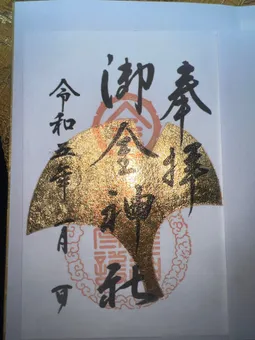 奉拝
御金神社
令和五年一月